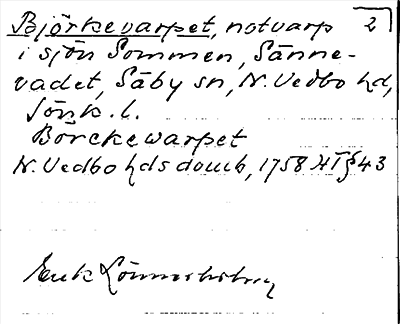 Björkevarpet, notvarp 2
i sjön Sommen, Sänne-
vadet, Säby sn, N. Vedbo hd,
Jönk. l.
Borckewarpet
N. Vedbo hds domb, 1758 HT § 43
Erik Lönnerholm